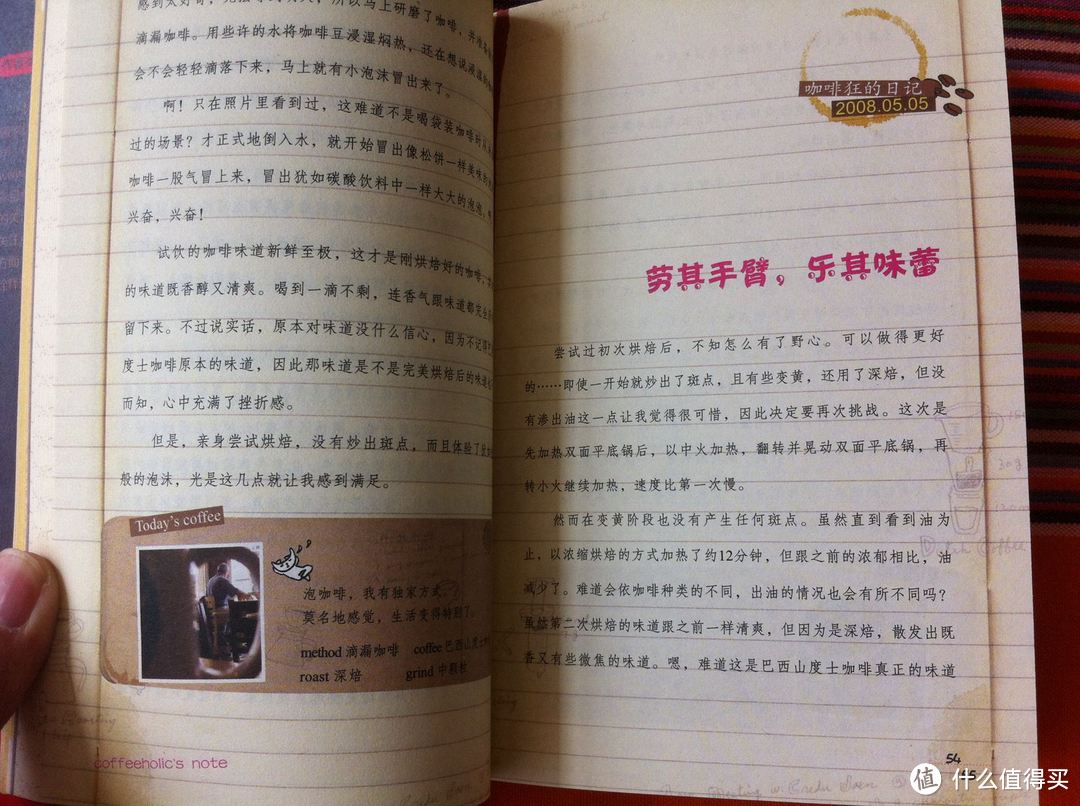 感到太好奇，
所以马上研磨了咖啡，并准备
滴漏咖啡。用些许的水将咖啡豆浸湿焖热，还在想说液
会不会轻轻滴落下来，马上就有小泡沫冒出来了。
啊！只在照片里看到过，这难道不是喝袋装咖啡时
过的场景？才正式地倒入水，就开始冒出像松饼一样美味的
咖啡一股气冒上来，冒出犹如碳酸饮料中一样大大的泡泡。
兴奋，兴奋！
试饮的咖啡味道新鲜至极，这才是刚烘焙好的咖啡，
的味道既香醇又清爽。喝到一滴不剩，连香气跟味道都完全
留下来。不过说实话，原本对味道没什么信心，因为不记得
度士咖啡原本的味道，因此那味道是不是完美烘焙后的味道
而知，心中充满了挫折感。
但是，亲身尝试烘焙，没有炒出斑点，而且体验了
般的泡沫，光是这几点就让我感到满足。
Today's coffee
泡咖啡，我有独家方式。
莫名地感觉，生活变得特别了。
method 滴漏咖啡 coffee 巴西山度士
roast 深焙 grind 中颗粒
coffeeholic's note
咖啡狂的日记
2008.05.05
劳其手臂，乐其味蕾
尝试过初次烘焙后，不知怎么有了野心。可以做得更好
的……即使一开始就炒出了斑点，且有些变黄，还用了深焙，但没
有渗出油这一点让我觉得很可惜，因此决定要再次挑战。这次是
先加热双面平底锅后，以中火加热，翻转并晃动双面平底锅，再
转小火继续加热，速度比第一次慢。
然而在变黄阶段也没有产生任何斑点。虽然直到看到油为
止，以浓缩烘焙的方式加热了约12分钟，但跟之前的浓郁相比，油
减少了。难道会依咖啡种类的不同，出油的情况也会有所不同吗？
虽然第二次烘焙的味道跟之前一样清爽，但因为是深焙，散发出既
香又有些微焦的味道。嗯，难道这是巴西山度士咖啡真正的味道
Dutch Coffee
54
值 什么值得买